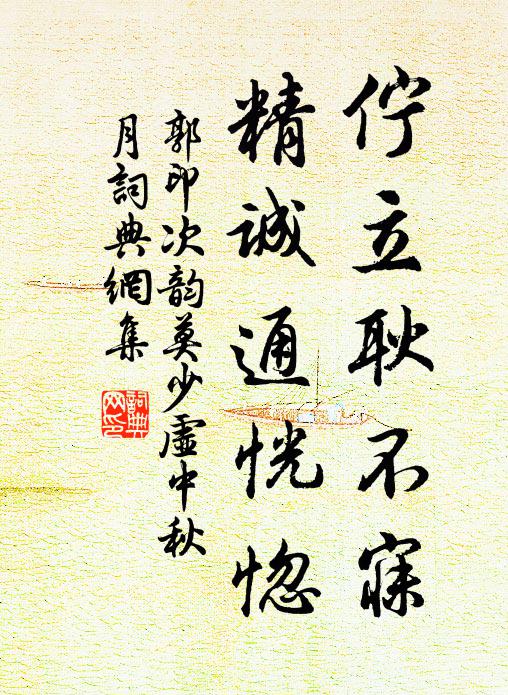 佇立耿不寐
精誠通恍惚
郭印次韵莫少虛中秋
月詞典網集
詞典
网印